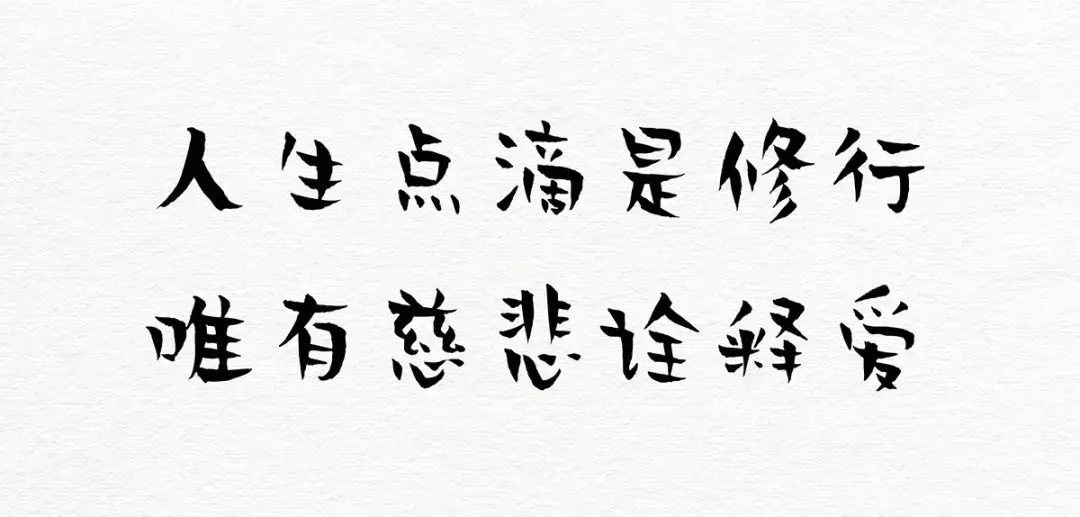 人生点滴是修行
唯有慈悲诠释爱